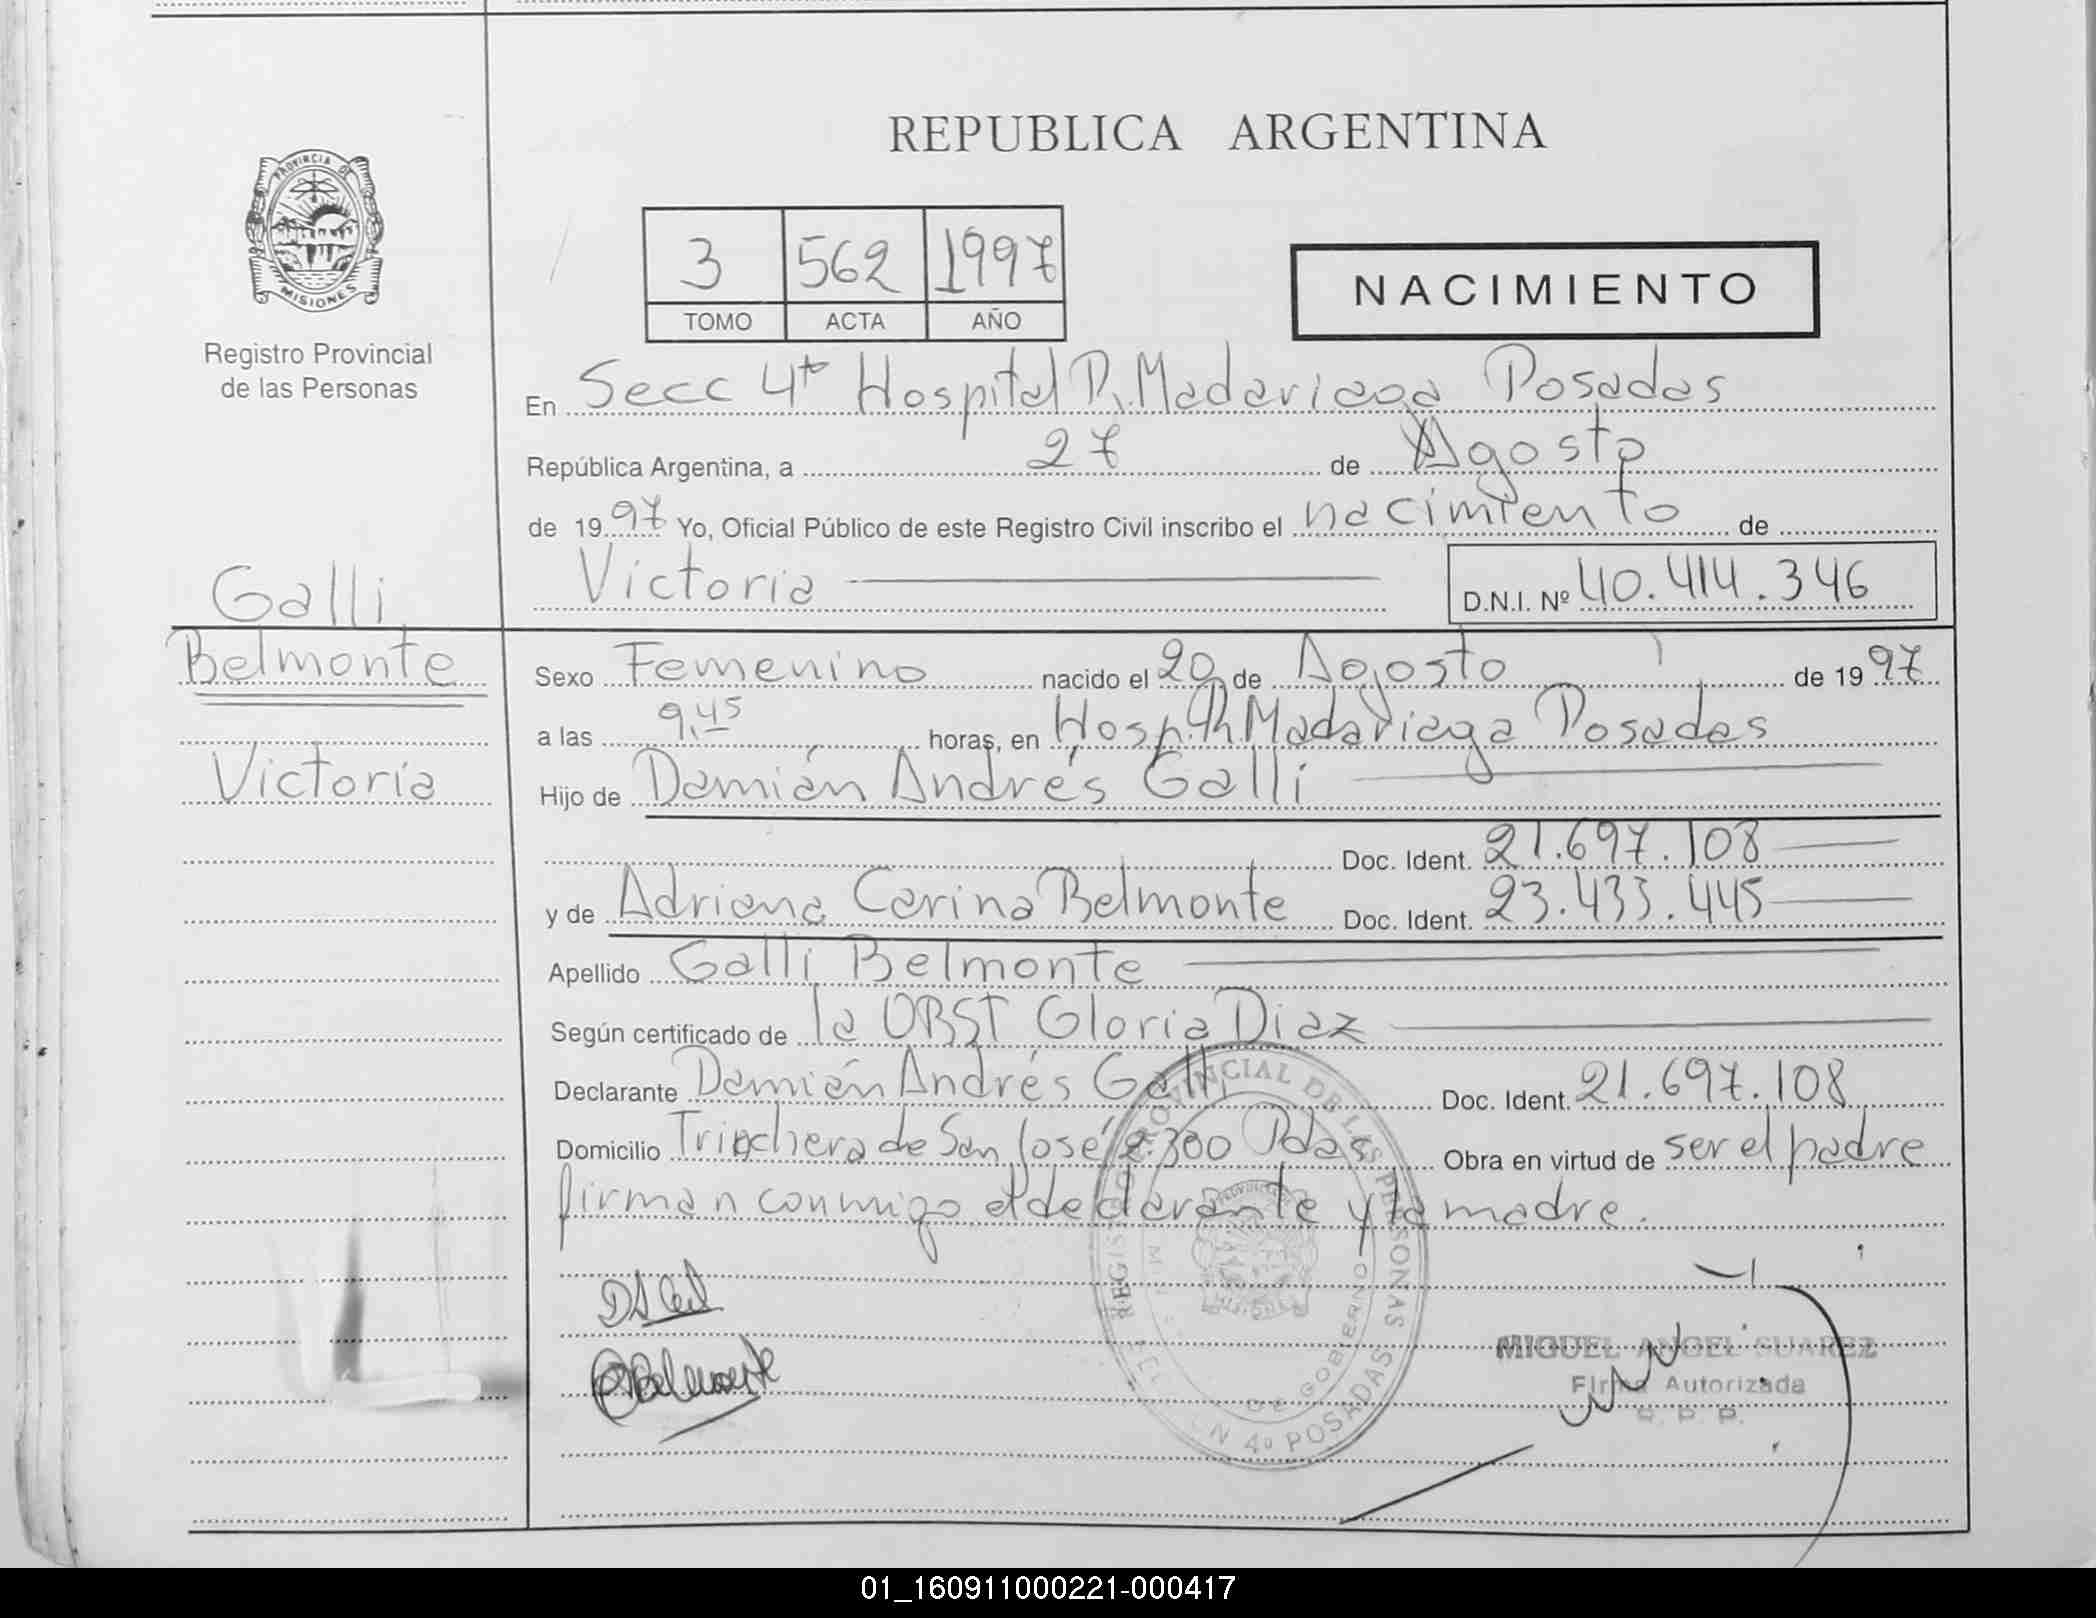 REPUBLICA ARGENTINA
PROVINCIA DE
MISIONES
Registro Provincial
de las Personas
3 562 1997
TOMO ACTA AÑO
NACIMIENTO
En Secc 4ta Hospital R. Madariaga Posadas
República Argentina, a 27 de Agosto
de 1997 Yo, Oficial Público de este Registro Civil inscribo el nacimiento de
Victoria
D.N.I. Nº 40.414.346
Galli
Belmonte
Victoria
Sexo Femenino nacido el 20 de Agosto de 1997
a las 9,45 horas, en Hosp. R. Madariaga Posadas
Hijo de Damián Andrés Galli
Doc. Ident. 21.697.108
y de Adriana Carina Belmonte Doc. Ident. 23.433.445
Apellido Galli Belmonte
Según certificado de la OBST Gloria Diaz
Declarante Damián Andrés Galli Doc. Ident. 21.697.108
Domicilio Trinchera de San José 2.300 Pdas Obra en virtud de ser el padre
firman conmigo el declarante y la madre.
REGISTRO PROVINCIAL DE LAS PERSONAS
DE GOBIERNO
4º POSADAS
Belmonte
MIGUEL ANGEL SUAREZ
Firma Autorizada
R. P. P.
01_160911000221-000417